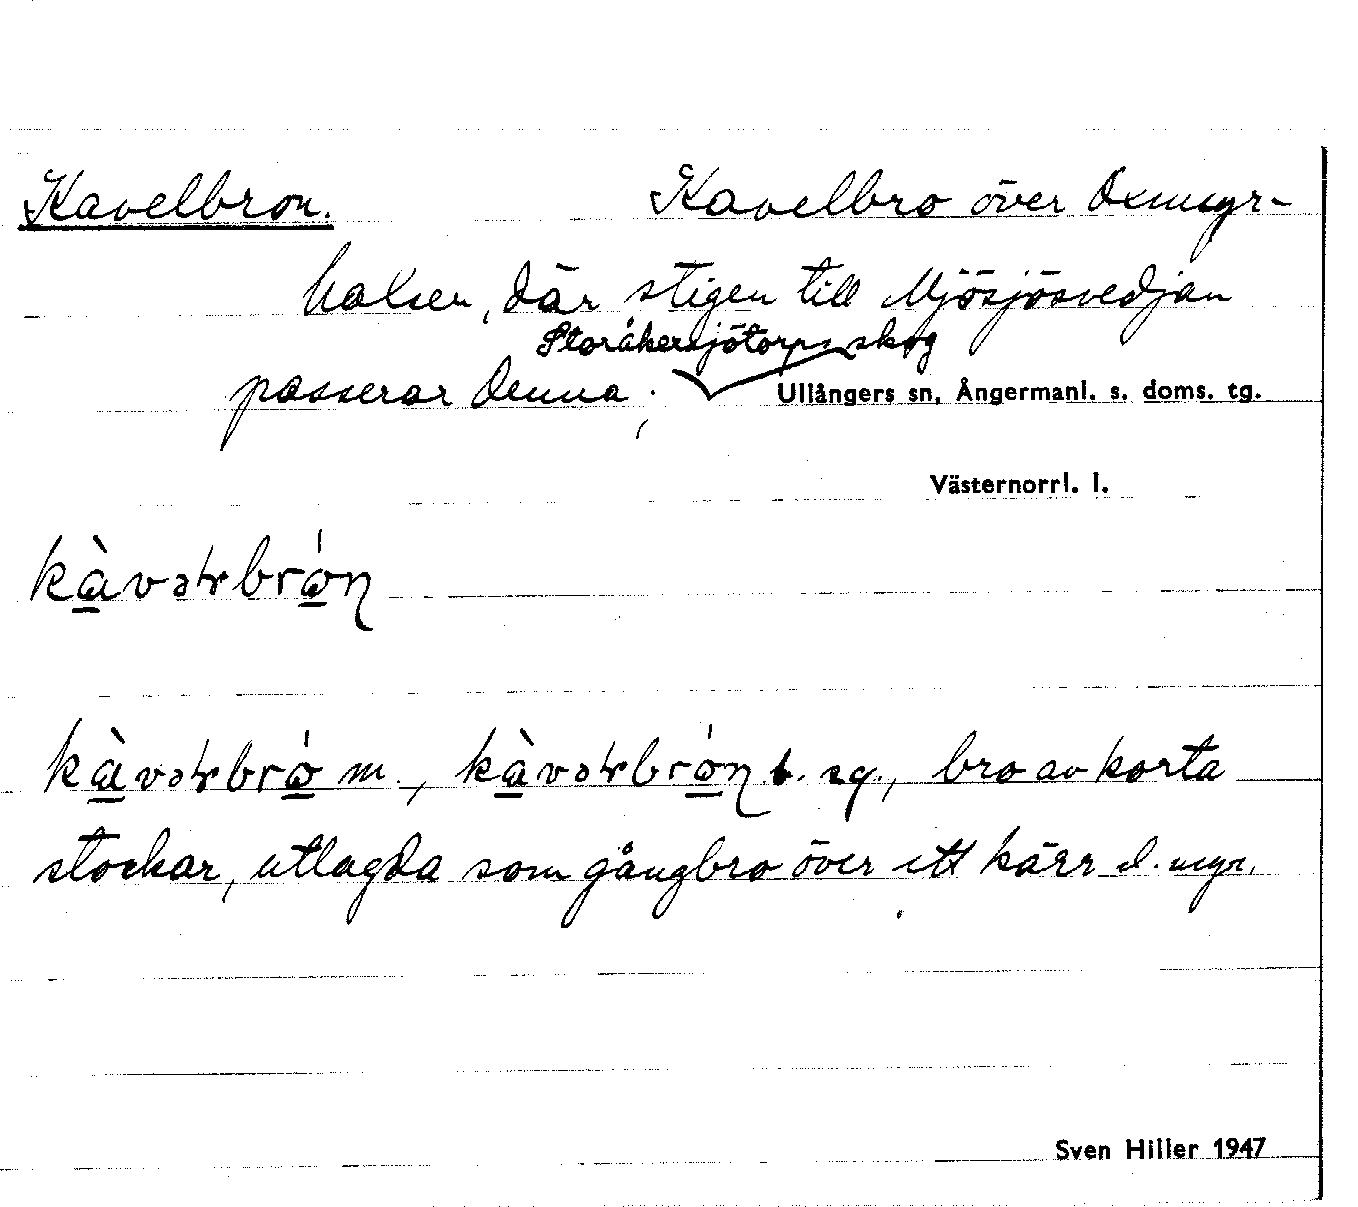 Kavelbron. Kavelbro över Oxmyr-
halsen, där stigen till Mjösjösvedjan
Storåkersjötorps skog
passerar denna; Ullångers sn, Ångermanl. s. doms. tg.
Västernorrl. l.
bro av korta
stockar, utlagda som gångbro över ett kärr el. myr.
Sven Hiller 1947